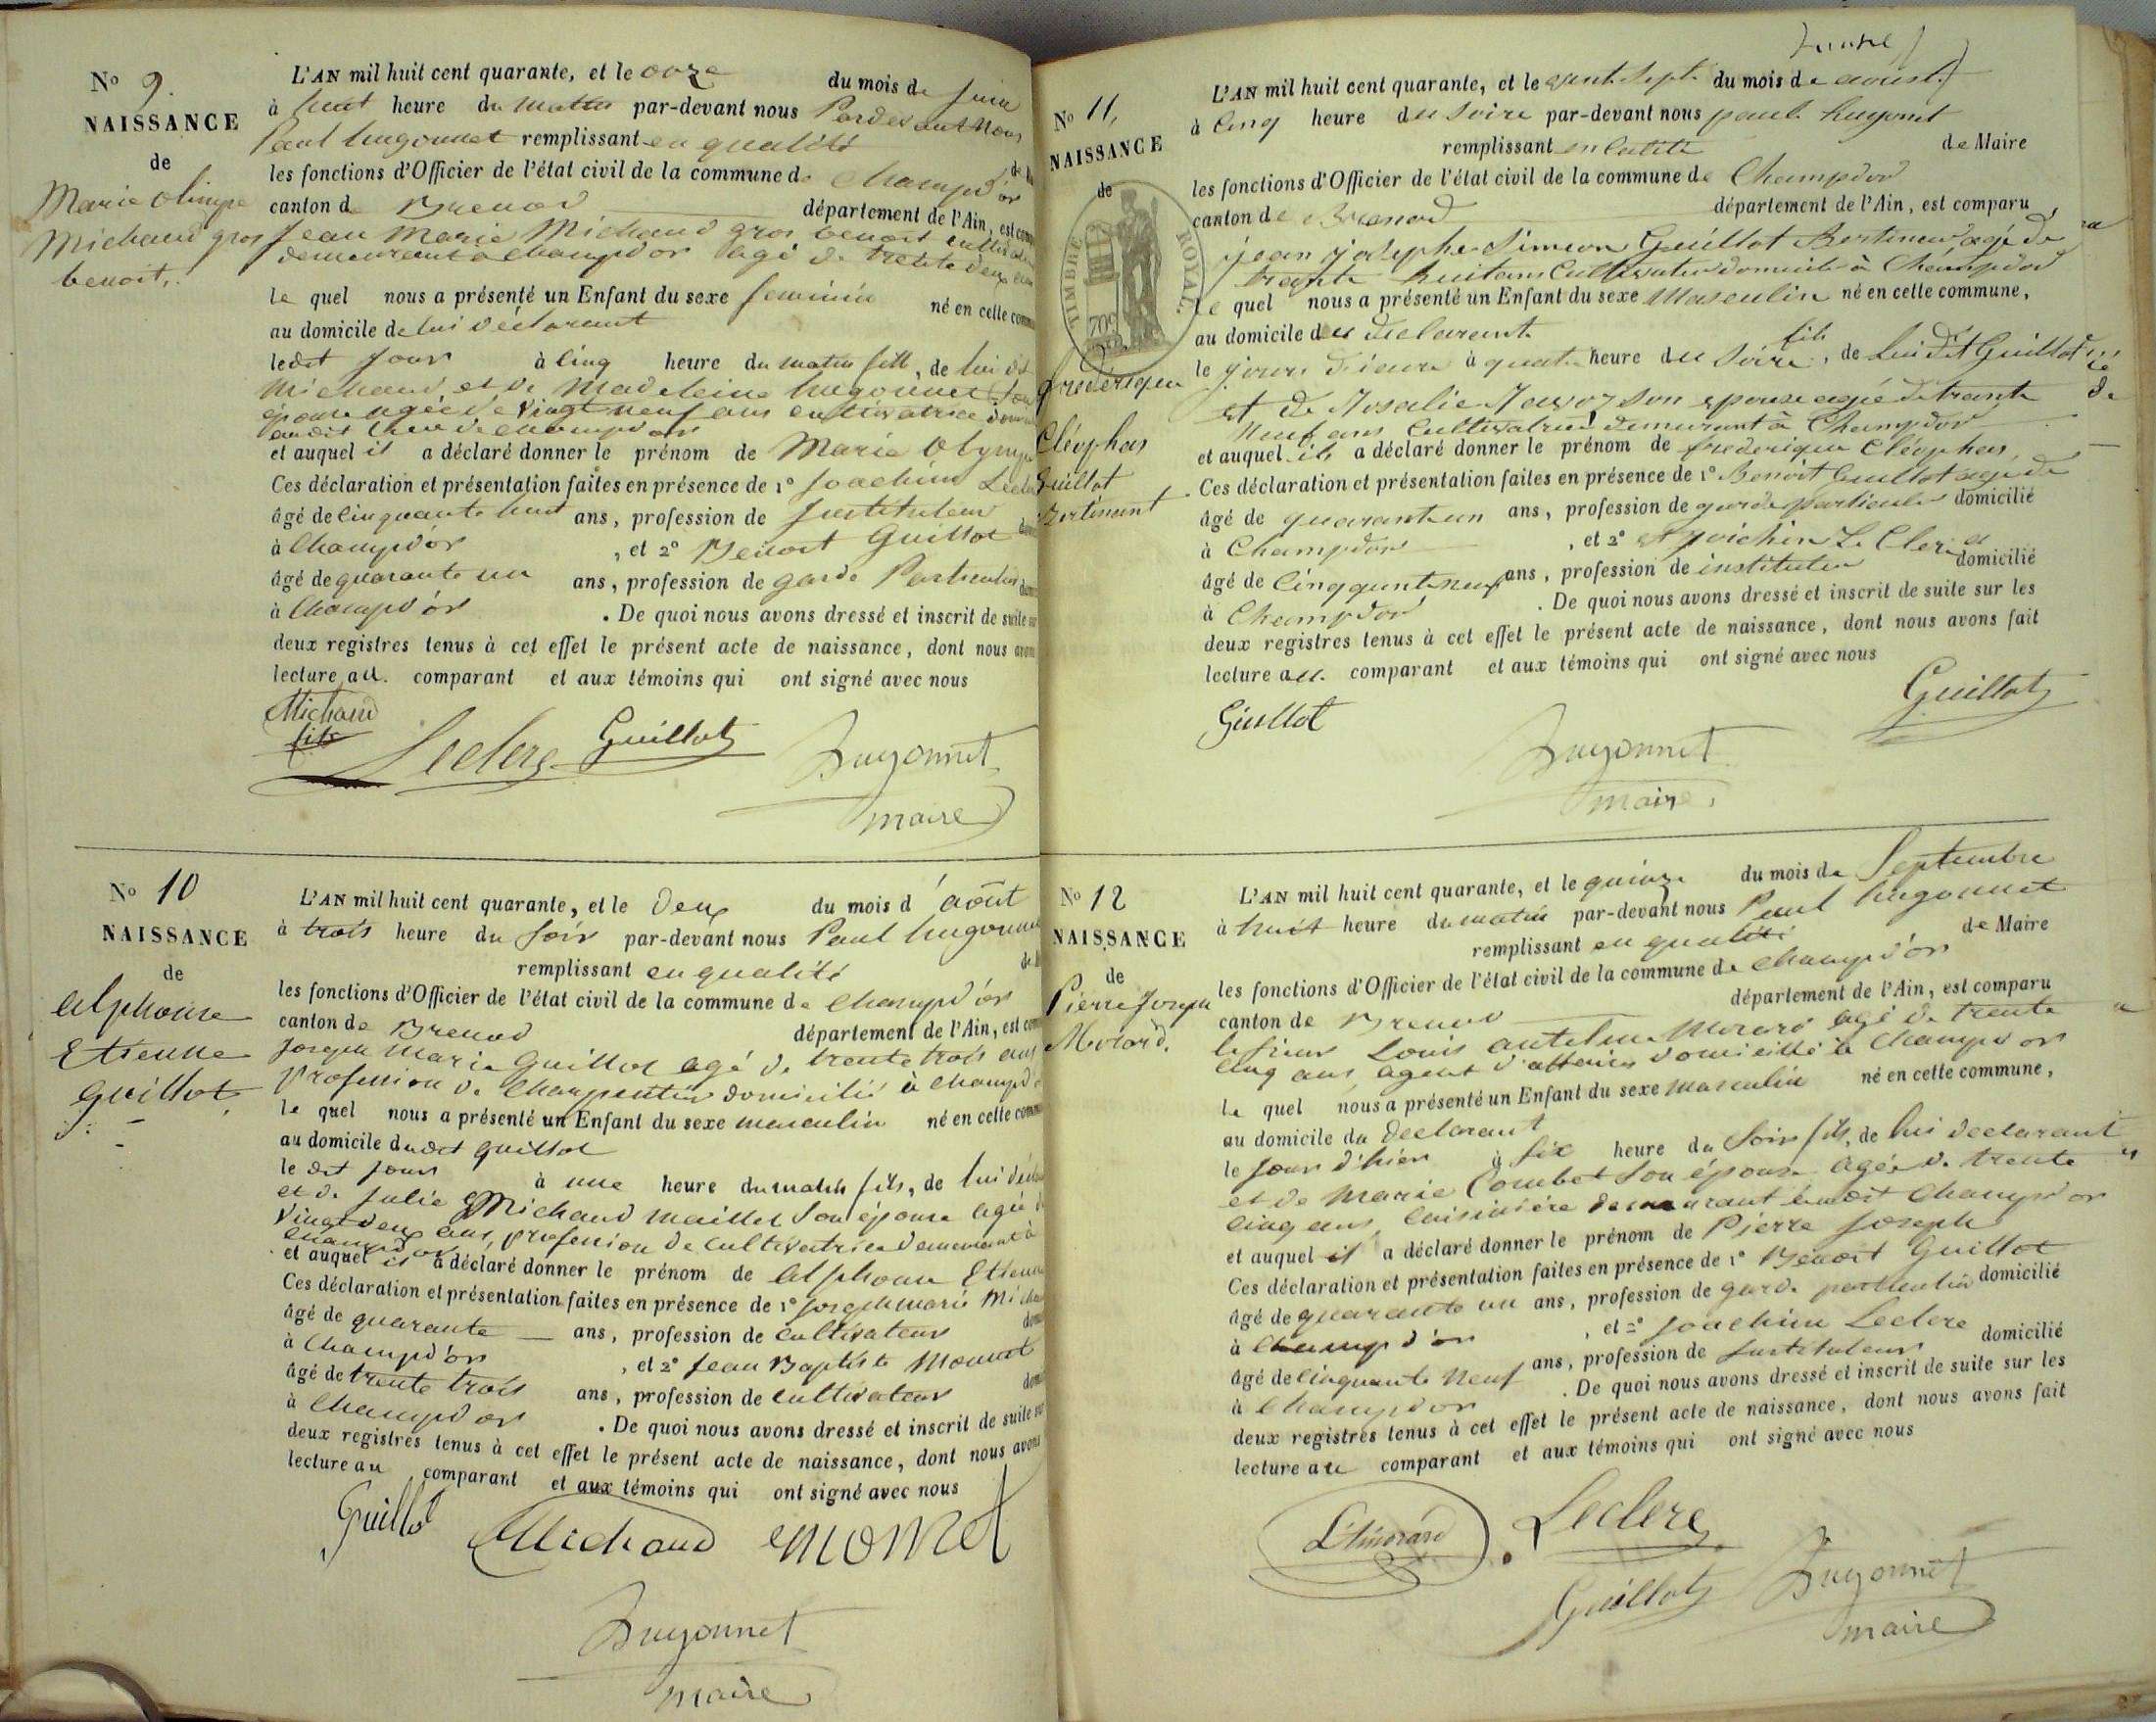 N° 9.
NAISSANCE
de
Marie Olimpe
Michaud gros
benoit.
L'AN mil huit cent quarante, et le onze du mois de juin
à huit heure du matin par-devant nous Pardevant nous
Paul hugonnet remplissant en qualité
les fonctions d'Officier de l'état civil de la commune de Champd'or
canton de Brenod département de l'Ain, est
Jean Marie Michaud gros benoit
demeurant a champdor agé de trente deux
le quel nous a présenté un Enfant du sexe feminin né en cette
au domicile de lui déclarant
ledit jour à cinq heure du matin fille, de lui dit
Michaud et de Madeleine hugonnet son
épouse agée de vingt neuf ans cultivatrice
audit lieu de champdor
et auquel il a déclaré donner le prénom de Marie Olympe
Ces déclaration et présentation faites en présence de 1° Joachim
âgé de cinquante huit ans, profession de Instituteur
à Champd'or , et 2° Benoit Guillot
âgé de quarante un ans, profession de garde Particulier
à Champd'or . De quoi nous avons dressé et inscrit de suite
deux registres tenus à cet effet le présent acte de naissance, dont nous
lecture au comparant et aux témoins qui ont signé avec nous
Michaud
fils
Leclerc Guillot hugonnet
maire
N° 10
NAISSANCE
de
Alphonse
Etienne
guillot
L'AN mil huit cent quarante, et le deux du mois d'août
à trois heure du soir par-devant nous Paul hugonnet
remplissant en qualité
les fonctions d'Officier de l'état civil de la commune de Champd'or
canton de Brenod département de l'Ain, est
Joseph Marie Guillot agé de trente trois ans
Profession de Charpentier domicilié à Champd'or
le quel nous a présenté un Enfant du sexe masculin né en cette
au domicile dudit guillot
le dit jour à une heure du matin fils, de lui
et de Julie Michaud maillet son épouse agée
vingt deux ans, profession de cultivatrice demeurant à
champdor
et auquel il a déclaré donner le prénom de Alphonse Etienne
Ces déclaration et présentation faites en présence de 1° Joseph marie
âgé de quarante ans, profession de cultivateur
à Champd'or , et 2° Jean Baptiste Monnet
âgé de trente trois ans, profession de cultivateur
à Champdor . De quoi nous avons dressé et inscrit de suite
deux registres tenus à cet effet le présent acte de naissance, dont nous avons
lecture au comparant et aux témoins qui ont signé avec nous
Guillot Michaud Monnet
hugonnet
maire
N° 11,
NAISSANCE
de
TIMBRE ROYAL
70c
frederique
Cléophas
Guillot
Bertinent
L'AN mil huit cent quarante, et le vint sept du mois de aoust
à cinq heure du soire par-devant nous paul hugonet
remplissant de Maire
les fonctions d'Officier de l'état civil de la commune de Champdor
canton de Brenod département de l'Ain, est comparu
jean josephe Simeon Guillot Bertinent agé de
trante huit ans Cultivateur domicile à Champdor
Le quel nous a présenté un Enfant du sexe Masculin né en cette commune,
au domicile du declarant
le jour d'ieure à quatre heure du soire, fils de Lui dit Guillot
et de Rosalie son epouse agée de trante
neuf ans Cultivatrice demurant à Champdor
et auquel ils a déclaré donner le prénom de frederique Cléophas
Ces déclaration et présentation faites en présence de 1° Benoit Guillot agé de
âgé de quarant un ans, profession de garde particulier domicilié
à Champdor , et 2° et joichin Le Clerc
âgé de Cinqquant neuf ans, profession de instituteur domicilié
à Champdor . De quoi nous avons dressé et inscrit de suite sur les
deux registres tenus à cet effet le présent acte de naissance, dont nous avons fait
lecture au comparant et aux témoins qui ont signé avec nous
Guillot Guillot
hugonnet
maire
N° 12
NAISSANCE
de
Pierre Joseph
Morard.
L'AN mil huit cent quarante, et le quinze du mois de Septembre
à huit heure du matin par-devant nous Paul hugonnet
remplissant en qualité de Maire
les fonctions d'Officier de l'état civil de la commune de Champd'or
canton de Brenod département de l'Ain, est comparu
le sieur Louis antelme Morard agé de trente
cinq ans agent d'affaires domicilié à Champdor
le quel nous a présenté un Enfant du sexe masculin né en cette commune,
au domicile du declarant
le jour d'hier à six heure du soir fils, de lui declarant
et de Marie Combet son épouse agée de trente
cinq ans cuisinière demeurant audit Champdor
et auquel il a déclaré donner le prénom de Pierre Joseph
Ces déclaration et présentation faites en présence de 1° Benoit Guillot
âgé de quarante un ans, profession de garde particulier domicilié
à Champd'or , et 2° Joachim Leclerc
âgé de cinquante neuf ans, profession de Instituteur domicilié
à Champdor . De quoi nous avons dressé et inscrit de suite sur les
deux registres tenus à cet effet le présent acte de naissance, dont nous avons fait
lecture au comparant et aux témoins qui ont signé avec nous
Leclerc
Guillot hugonnet
maire